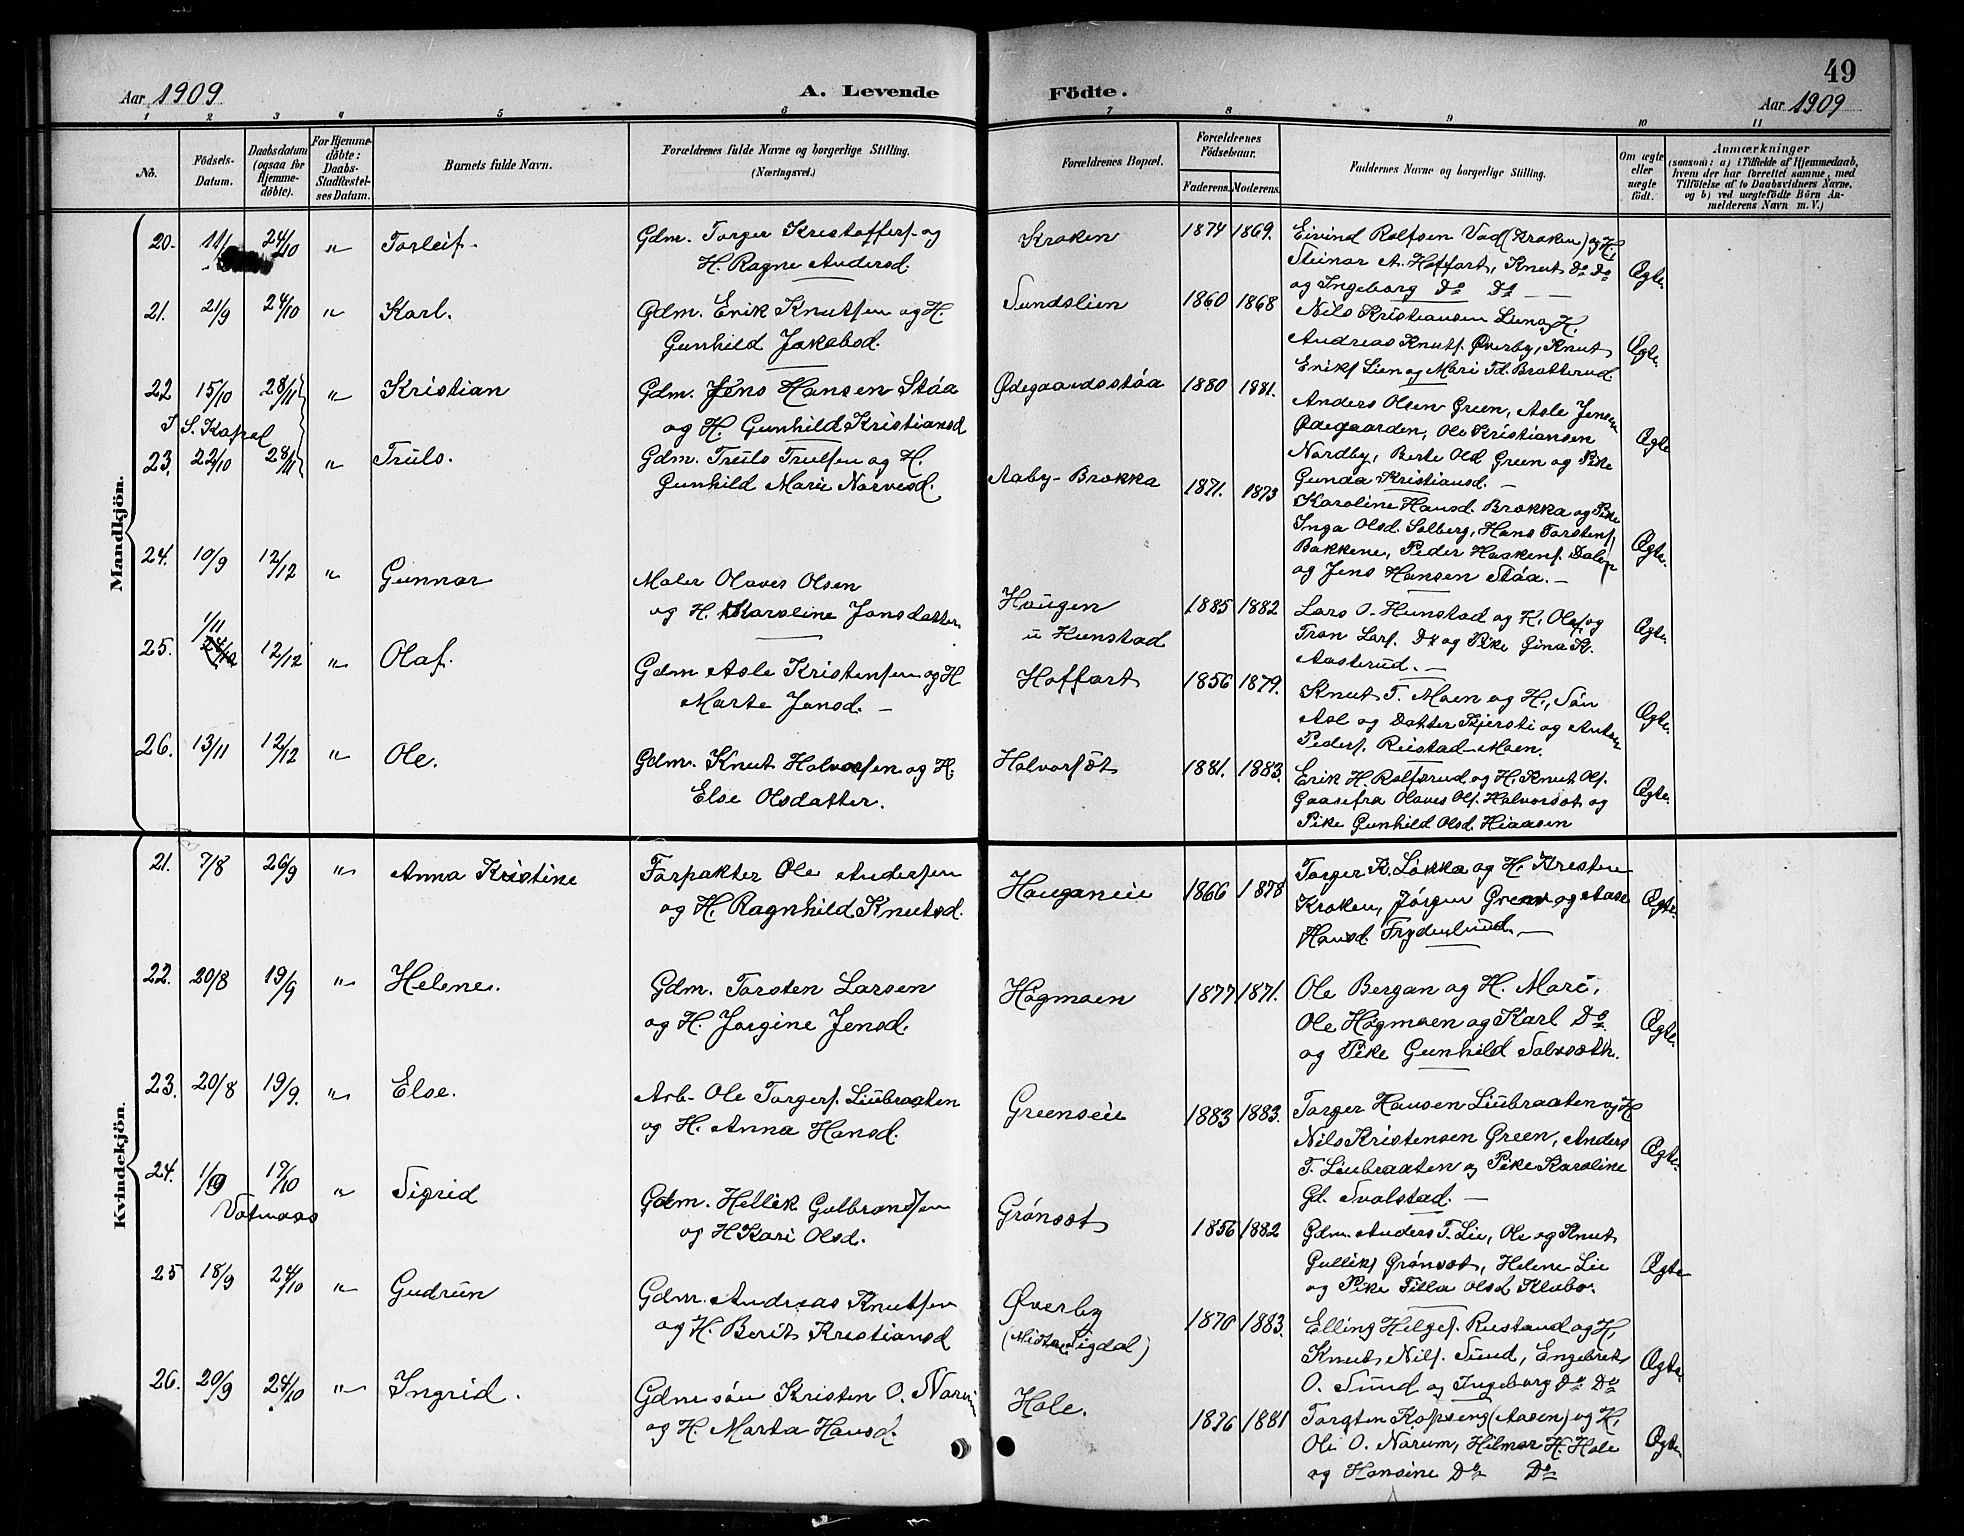 Aar 1909. A. Levende Födte. 49
Aar 1909
1 2 3 4 5 6 7 8 9 10 11
No.
Födsels-Datum.
Daabsdatum (ogsaa for Hjemmedöbte).
For Hjemmedöbte: Daabs-Stadfæstelses Datum.
Barnets fulde Navn.
Forældrenes fulde Navne og borgerlige Stilling.
(Næringsvei.)
Forældrenes Bopæl.
Forældrenes Födselsaar.
Faderens. Moderens.
Faddernes Navne og borgerlige Stilling.
Om ægte eller uægte födt.
Anmærkninger
(saasom: a) i Tilfælde af Hjemmedaab,
hvem der har forrettet samme, med
Tilföielse af to Daabsvidners Navne,
og b) ved uægtefödte Börn Anmelderens Navn m. V.)
Mandkjön.
20. 24/10 " Torleif.
Gdm. Torger Kristoffers. og
H. Ragne Andersd.
Kroken 1874 1869.
Eivind Rolfsen Vad (Kroken) og H.
Steinar A. Hoffart, Knut Do Do
og Ingeborg Do Do —
Ægte.
21. 21/9 24/10 " Karl.
Gdm. Erik Knutsen og H.
Gunhild Jakobsd.
Sundslien 1860 1868
Nils Kristiansen Lien og H.
Andreas Knuts. Øverby, Knut
Eriks Lien og Mari Td. Bratterud
Ægte.
22 15/10 28/11 " Kristian
Gdm. Jens Hansen Støa
og H. Gunhild Kristiansd
Ødegaardsstøa 1880 1881.
Anders Olsen Green, Asle Jensen
Ødegaarden, Ole Kristiansen
Nordby, Berte Old Green og Pike
Gunda Kristiansd. —
Ægte
I S. Kapel
23. 22/10 28/11 " Truls.
Gdm. Truls Trulsen og H.
Gunhild Marie Narvesd.
Aaby-Brokka 1871. 1873
Karoline Hansd. Brokka og Pike
Inga Olsd. Solberg, Hans Torstens.
Bakkene, Peder Haakens. Dalen
og Jens Hansen Støa. —
Ægte.
24. 10/9 12/12 " Gunnar
Maler Olaves Olsen
og H. Karoline Jansdatter
Haugen
u Hunstad 1885 1882
Lars O. Hunstad og H., Olaf og
Tron Lars. Do og Pike Gina K.
Aasterud. —
Ægte.
25. 1/11 12/12 " Olaf.
Gdm Asle Kristensen og H
Marte Jensd. —
Hoffart 1856 1879.
Knut T. Moen og H., Søn
Asl og Datter Kjersti og Anton
Peders. Rustad-Moen.
Ægte.
26. 13/11 12/12 " Ole.
Gdm. Knut Halvorsen og H.
Else Olsdatter.
Halvorsöt 1881. 1883.
Erik H. Rolfsrud og H. Knut Ols.
Gaasefra Olaves Ols. Halvorsöt og
Pike Gunhild Olsd. Hiaasen
Ægte.
Kvindekjön.
21. 7/8 26/9 " Anna Kristine
Forpakter Ole Andersen
og H. Ragnhild Knutsd.
Hauganeie 1866 1878
Torger K. Løkka og H. Kristen
Kroken, Jørgen Green og Aase
Hansd. Frydenlund. —
Ægte.
22. 20/8 19/9 " Helene.
Gdm. Torsten Larsen
og H. Jorgine Jensd.
Høgmoen 1877 1871.
Ole Bergan og H. Mari,
Ole Høgmoen og Karl Do
og Pike Gunhild
Ægte.
23. 20/8 19/9. " Else.
Arb. Ole Torgers. Liubraaten
og H. Anna Hansd.
Greenseie 1883 1883.
Torger Hansen Liubraaten og H
Nils Kristensen Green, Anders
T. Liubraaten og Pike Karoline
Gd. Svalstad. —
Ægte.
24. 1/9 " Sigrid
Gdm. Hellik Gulbrandsen
og H Kari Olsd.
Grönsöt 1856 1882
Gdm. Anders T. Lie, Ole og Knut
Gulliks Grönsöt, Helene Lie
og Pike Tilla Olsd Klabo.
Ægte
Vatnaas
25 18/9 24/10 " Gudrun
Gdm. Andreas Knutsen
og H. Berit Kristiansd
Øverby
(Sigdal) 1870 1883.
Elling Helges. Rustand og H,
Knut Nils. Sund, Engebret
O. Sund og Ingeborg Do Do
Ægte
26. 20/9 24/10 " Ingrid.
Gdmesøn Kristen O. Narum
og H. Marta Hansd.
Hole. 1881
Torsten Kopseng (Aasen) og H.
Ole O. Narum, Hilmar H. Hole
og Hansine Do Do
Ægte